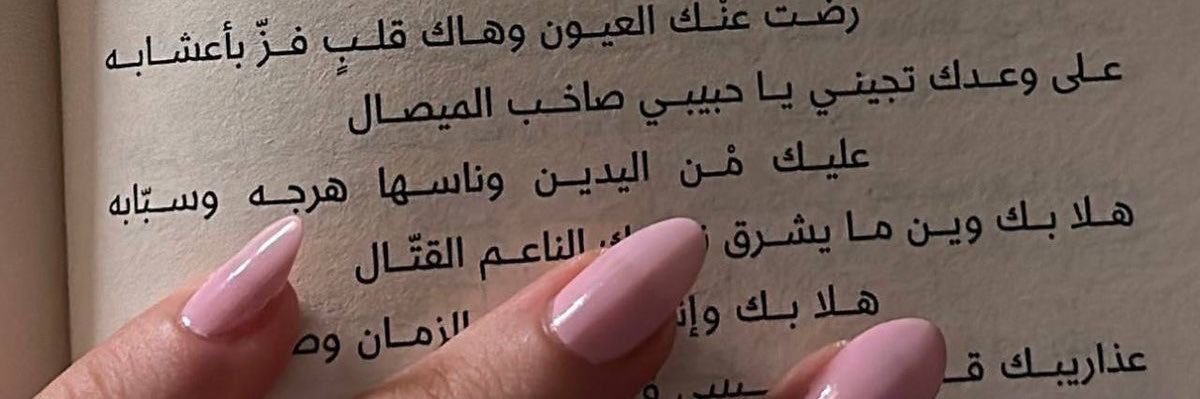 رضت عنْك العيون وهاك قلبٍ فزّ بأعشابه
على وعدك تجيني يا حبيبي صاخب الميصال
عليك مْن اليدين وناسها هرجه وسبّابه
هلا بك وين ما يشرق الناعم القتّال
هلا بك الزمان
عذاريبك